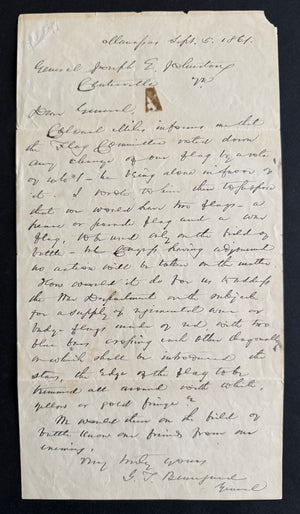 Manassas Sept. 5. 1861.
General Joseph E. Johnston
Centreville Va
Dear General,
Colonel Miles informs me that
the Flag Committee voted down
any change of our flag by a vote
of to he being alone in favor of
it. I wrote to him then to propose
that we should have two flags – a
peace or parade flag and a war
flag, to be used only on the field of
battle – but Congress having adjourned
no action will be taken on the matter
How would it do for us to address
the War Department on the subject
for a supply of regimental war or
badge flags made of red with two
blue bars crossing each other diagonally
on which shall be introduced the
stars, the edge of the flag to be
trimmed all around with white
yellow or gold fringe
We would then on the field of
battle know our friends from our
enemies.
Very truly yours
G. T. Beauregard
General